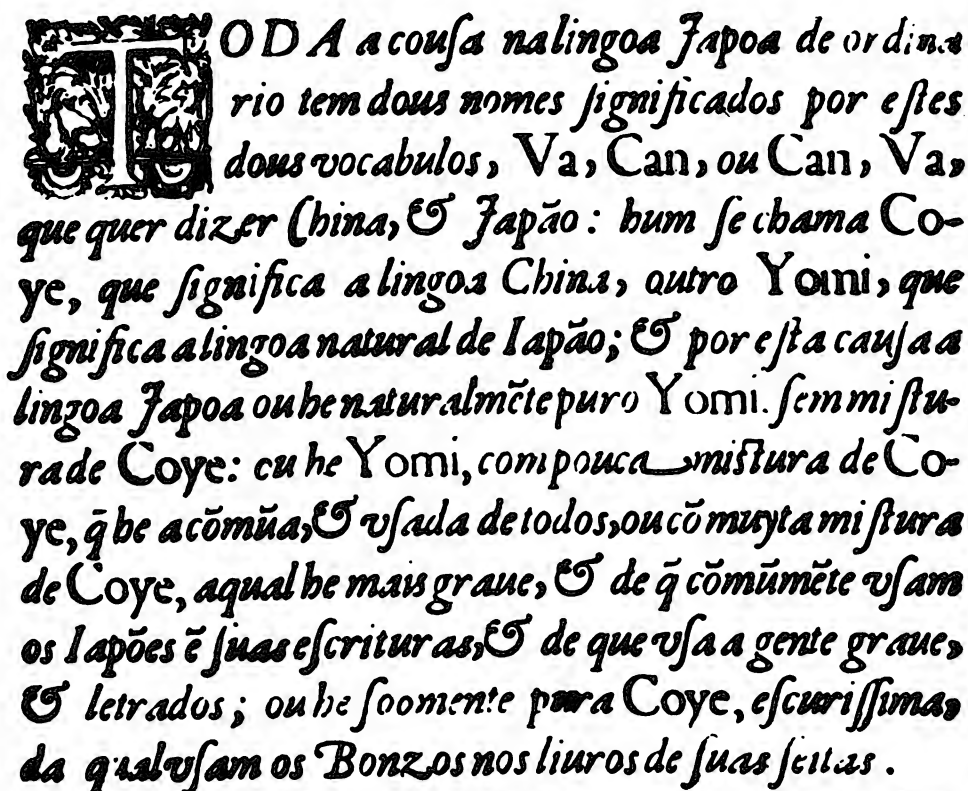 TODA a cousa na lingoa Japoa de ordina
rio tem dous nomes significados por estes
dous vocabulos, Va, Can, ou Can, Va,
que quer dizer China, & Japão: hum se chama Co-
ye, que significa a lingoa China, outro Yomi, que
significa a lingoa natural de Iapão; & por esta causa a
lingoa Japoa ou he naturalmẽte puro Yomi. sem mistu-
ra de Coye: cu he Yomi, com pouca mistura de Co-
ye, q̃ he a cõmũa, & vsada de todos, ou cõ muyta mistura
de Coye, aqual he mais graue, & de q̃ cõmũmẽte vsam
os Iapões ẽ suas escrituras, & de que vsa a gente graue,
& letrados; ou he soomente pura Coye, escurissima,
da qual vsam os Bonzos nos liuros de suas seitas.